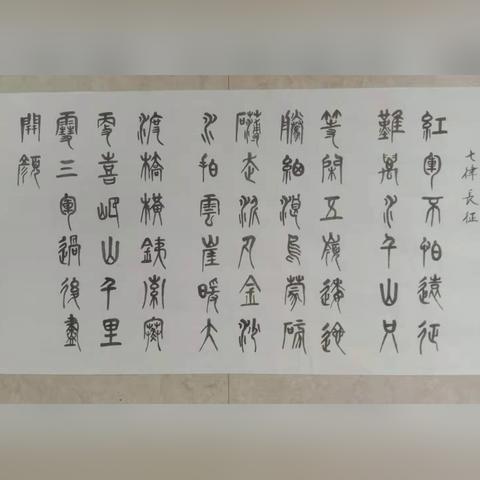 七律長征
紅軍不怕遠征
難萬水千山只
等閑五嶺逶迤
騰細浪烏蒙磅
礴走泥丸金沙
水拍雲崖暖大
渡橋橫鐵索寒
更喜岷山千里
雪三軍過後盡
開顏